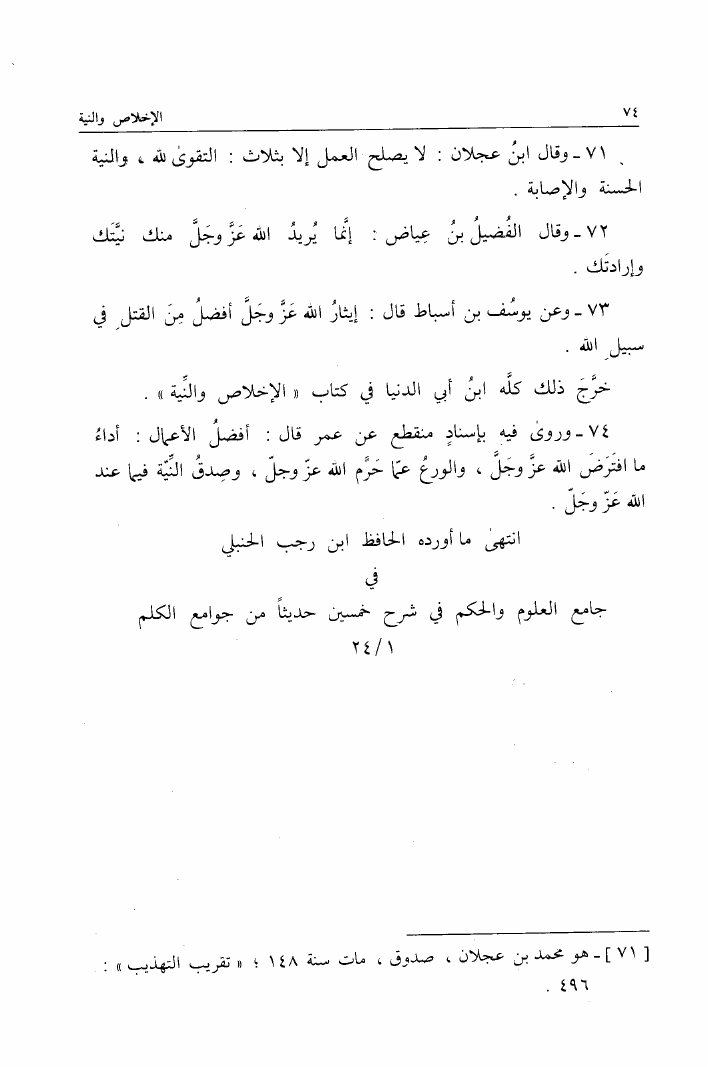 ٧٤
الإخلاص والنية
٧١ - وقال ابنُ عجلان : لا يصلح العمل إلا بثلاث : التقوىٰ لله ، والنية
الحسنة والإصابة .
٧٢ - وقال الفُضيلُ بنُ عِياض : إنَّما يُريدُ الله عَزَّ وجَلَّ منك نيَّتَك
وإرادتَك .
٧٣ - وعن يوسُف بن أسباط قال : إيثارُ الله عَزَّ وجَلَّ أفضلُ مِنَ القتلِ في
سبيلِ الله .
خرَّجَ ذلك كلَّه ابنُ أبي الدنيا في كتاب « الإخلاص والنِّية » .
٧٤ - وروىٰ فيه بإسنادٍ منقطع عن عمر قال : أفضلُ الأعمال : أداءُ
ما افتَرَضَ الله عزَّ وجَلَّ ، والورعُ عمّا حَرَّم الله عزّ وجلّ ، وصدقُ النيَّة فيما عند
الله عَزّ وجَلّ .
انتهىٰ ما أورده الحافظ ابن رجب الحنبلي
في
جامع العلوم والحكم في شرح خمسين حديثاً من جوامع الكلم
٢٤/١
[ ٧١ ] - هو محمد بن عجلان ، صدوق ، مات سنة ١٤٨ ؛ « تقريب التهذيب » :
٤٩٦ .